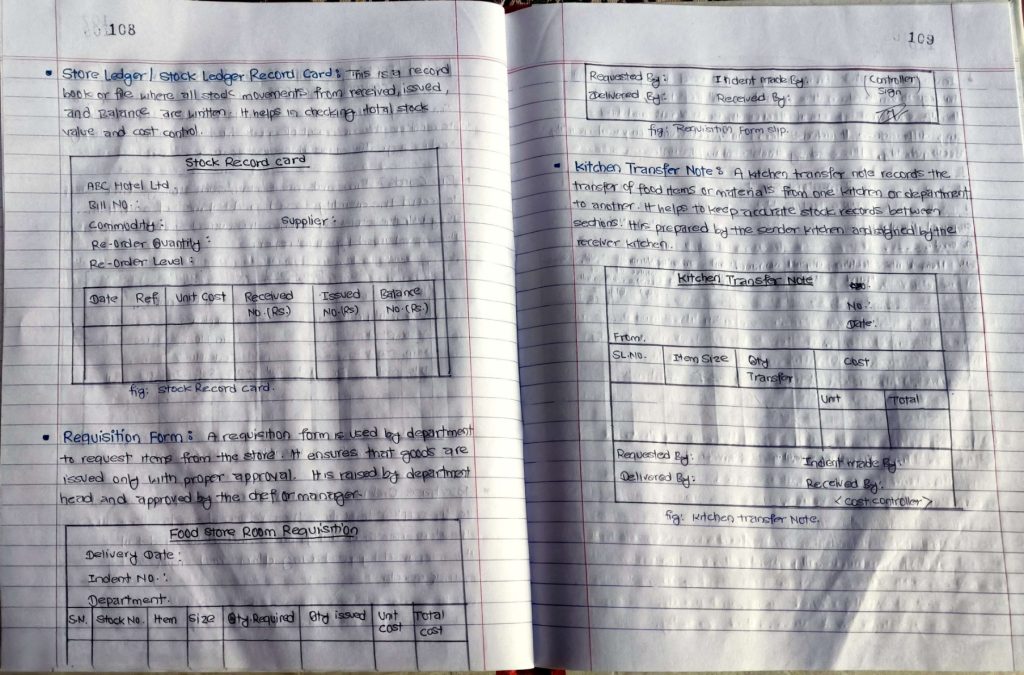 108
• Store Ledger / Stock Ledger Record Card : This is a record
book or file where all stock movements from received, issued,
and Balance are written. It helps in checking total stock
value and cost control.
Stock Record card
ABC, Hotel Ltd.
Bill NO. :
Commodity :    Supplier :
Re-order Quantity :
Re-order Level :
Date    Ref    Unit cost    Received    Issued    Balance
NO. (Rs.)    NO. (Rs)    NO. (Rs.)
fig: Stock Record card.
• Requisition Form : A requisition form is used by department
to request items from the store. It ensures that goods are
issued only with proper approval. It is raised by department
head and approved by the chef or manager.
Food Store Room Requisition
Delivery Date :
Indent NO. :
Department.
S.N.    Stock No.    Item    Size    Qty Required    Qty issued    Unit    Total
cost    cost
109
Requested By :    Indent made By :    (Controller)
Delivered By :    Received By :    Sign
fig: Requisition Form slip.
• Kitchen Transfer Note : A kitchen transfer note records the
transfer of food items or materials from one kitchen or department
to another. It helps to keep accurate stock records between
sections. It is prepared by the sender kitchen and signed by the
receiver kitchen.
Kitchen Transfer Note
No. :
Date :
From :
SL.NO.    Item Size    Qty    Cost
Transfer
Unit    Total
Requested By :    Indent made By :
Delivered By :    Received By :
<cost controller>
fig: Kitchen transfer Note.